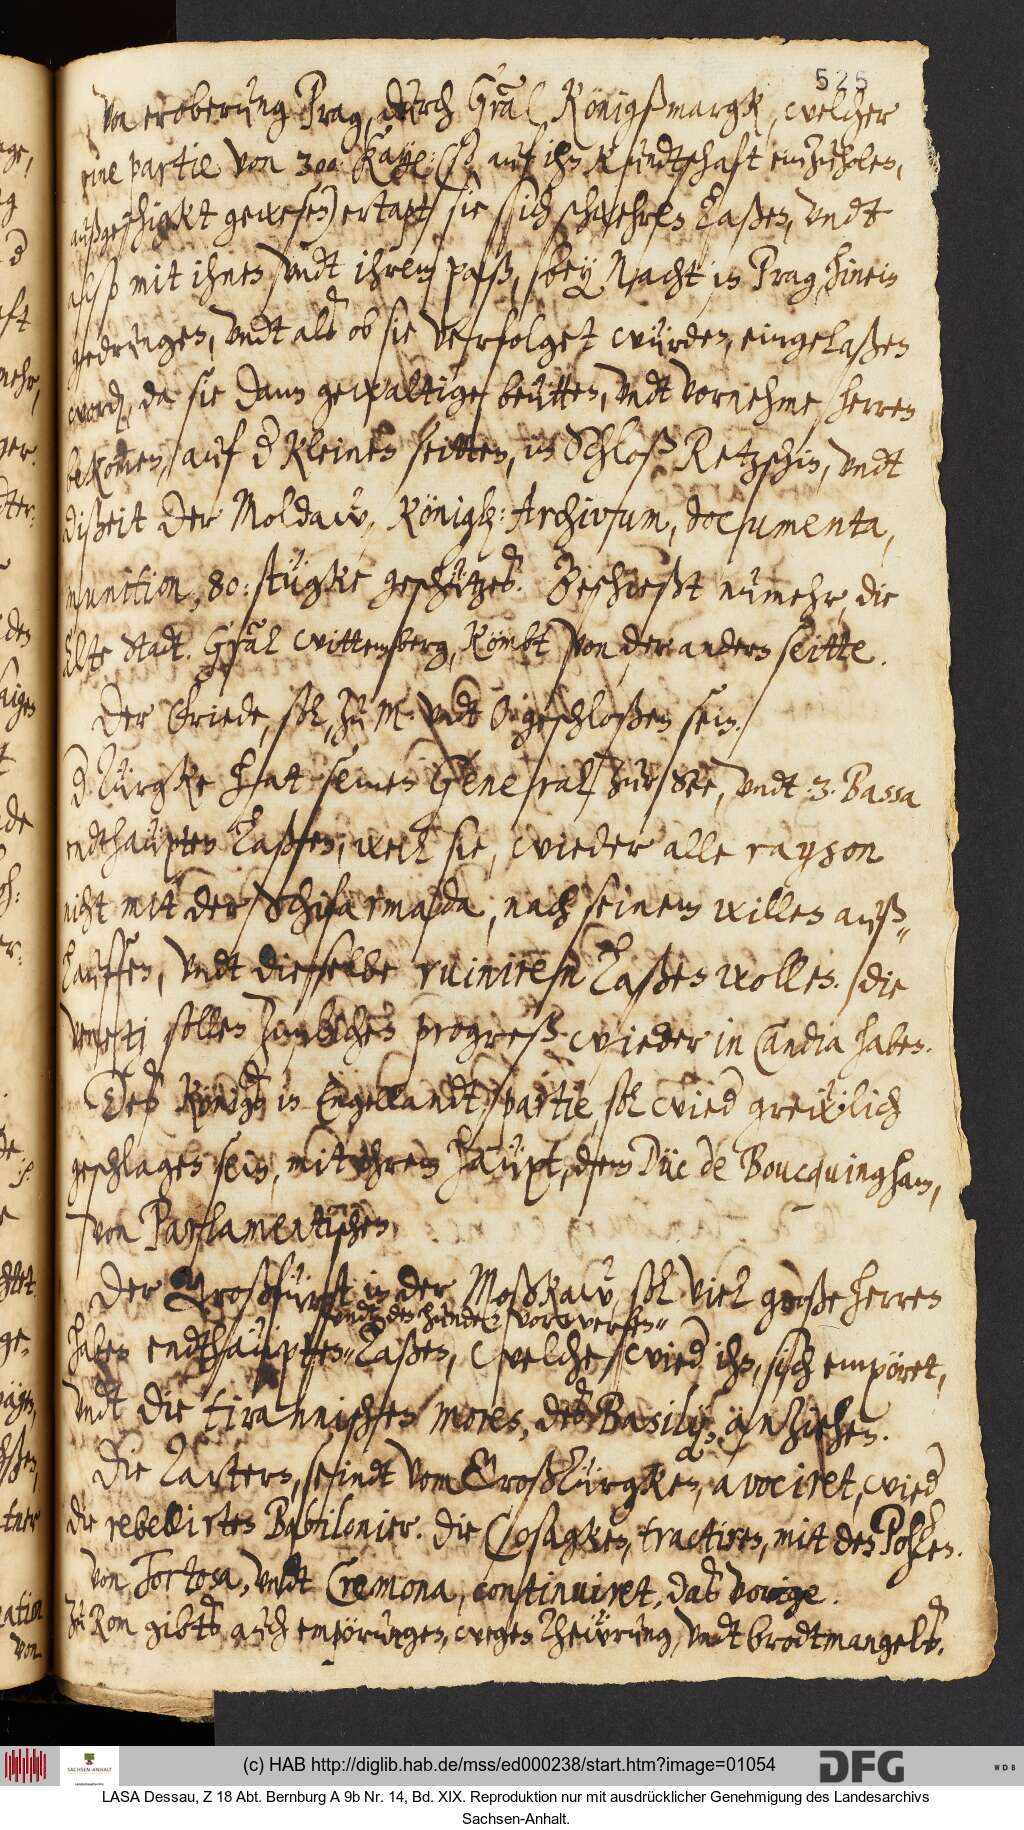 525
Von eroberung Prag, durch Gräl Königßmargk, welcher
eine partie von 300: Kayß: (so auf ihn kundtschaft einzuholen,
außgeschigkt gewesen) ertapt sie sich schwehren laßen, undt
also mit ihnen undt ihrem paß, bey Nacht in Prag hinein
gedrungen, undt alß ob sie verfolget würden, eingelaßen
word, da sie dann gewaltige beütten, undt vornehme herren
bekomen, auf d kleinen seitten, in Schloß Retzschin, undt
dißeit der Moldaw, Königl: Archivum, documenta,
munition, 80: stügke geschützes. Beschießt numehr, die
Alte Stadt. Gräl Wittemberg, kömbt von der andern seitte.
Der Friede, sol, zu M. undt O. geschloßen sein.
d Türgke hat seinen General zur See, undt 3. Bassa
endthaüpten laßen, weil sie, wieder alle rayson
nicht mit der Schifarmada, nach seinem willen auß-
lauffen, undt dieselbe ruiniren laßen wollen. die
Veneti sollen zimlichen progreß wieder in Candia haben.
Des Königs in Engellandt partie, sol wied greẅlich
geschlagen sein, mit ihrem haüpt, dem Duc de Boucquingham,
von Parlamentischen.
Der Großfürst in der Moßkaw, sol viel große herren
haben endthaüpten laßen, undt den hunden vorwerfen welche wied ihn, sich empöret,
undt die tirannischen mores, des Basilij, anziehen.
Die Tartern, seindt vom Großtürgken, avociret, wied
die rebellirten Babilonier. die Cosagken, tractiren, mit den Pohlen.
Von Tortosa, undt Cremona, continuiret, das vorige.
Zu Rom gibts auch empörungen, wegen theürung, undt brodtmangels.
(c) HAB http://diglib.hab.de/mss/ed000238/start.htm?image=01054
SACHSEN-ANHALT
DFG
WDB
LASA Dessau, Z 18 Abt. Bernburg A 9b Nr. 14, Bd. XIX. Reproduktion nur mit ausdrücklicher Genehmigung des Landesarchivs
Sachsen-Anhalt.